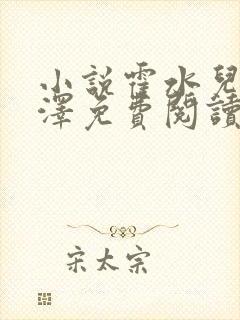 小說霍水兒
澤免費閱讀
宋太宗